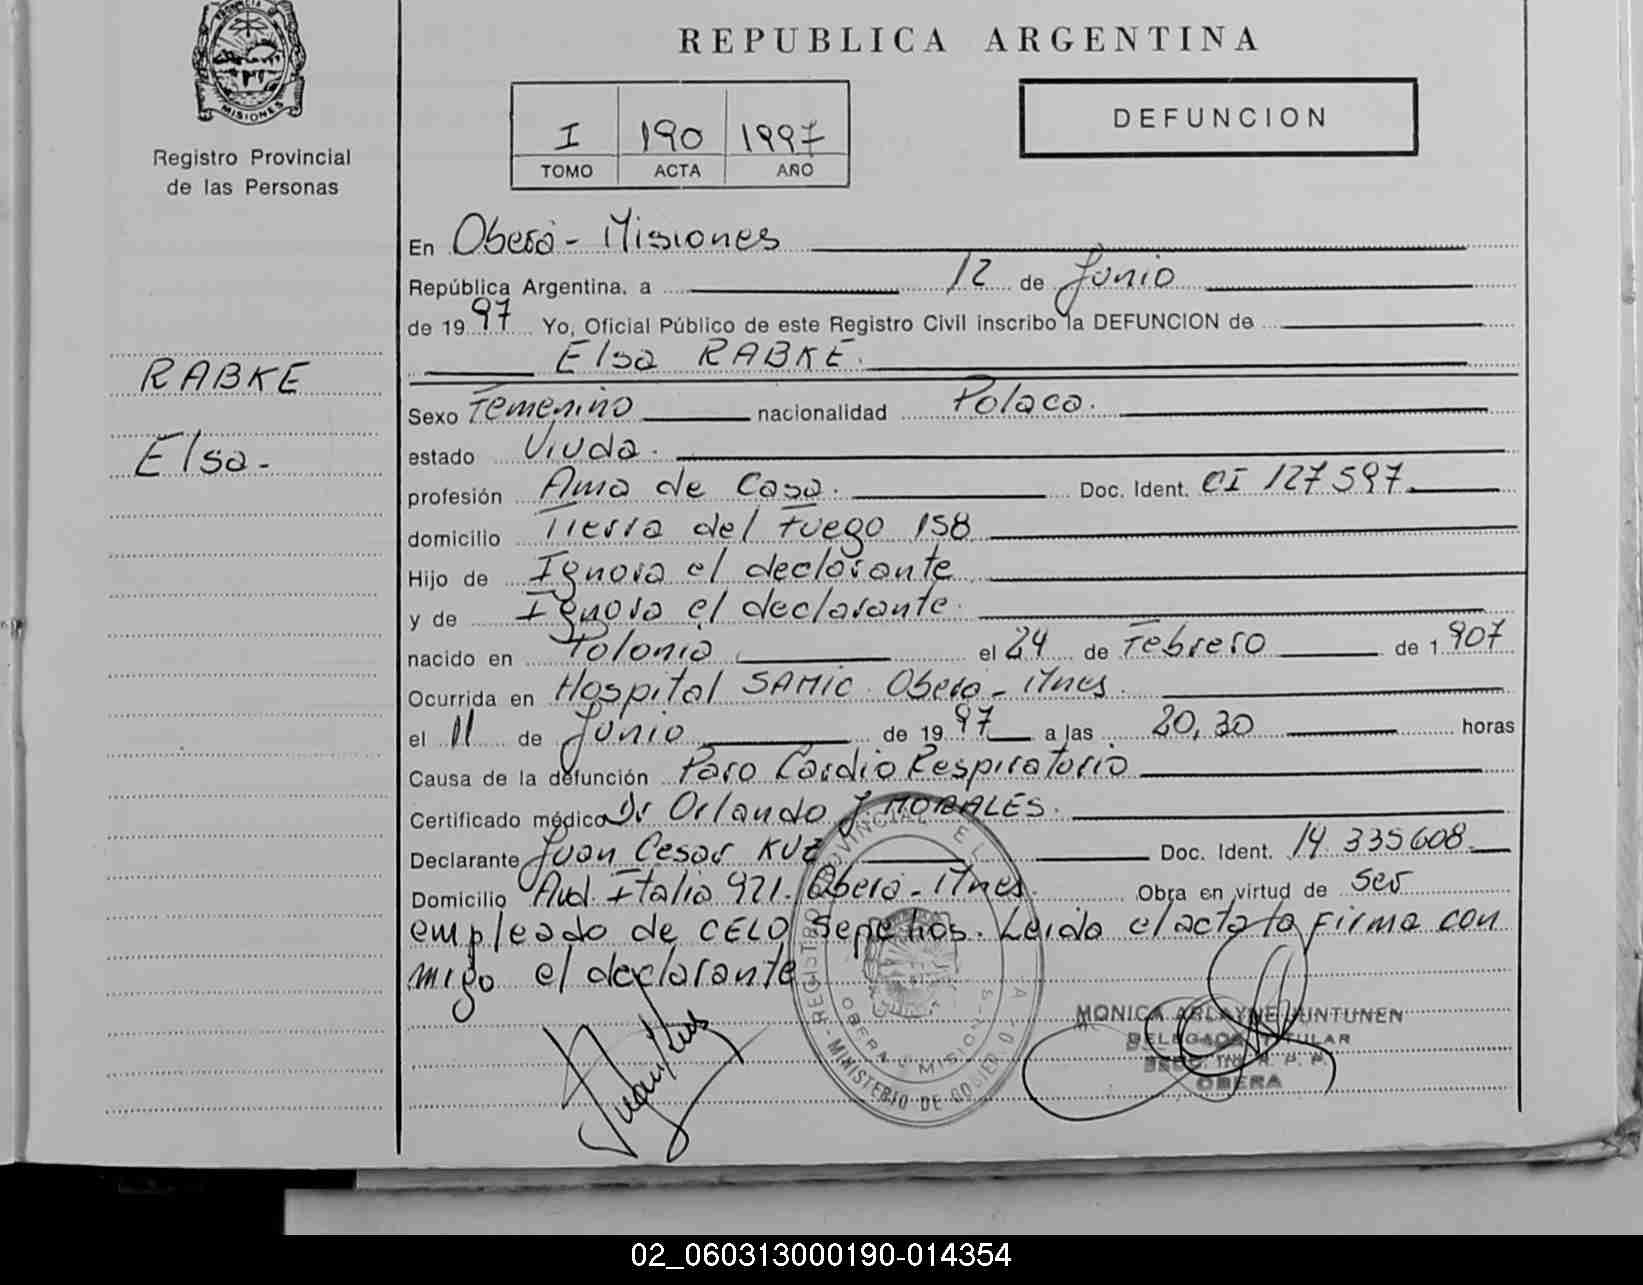 PROVINCIA DE
MISIONES
Registro Provincial
de las Personas
RABKE
Elsa -
REPUBLICA ARGENTINA
I 190 1997
TOMO ACTA AÑO
DEFUNCION
En Oberá - Misiones
República Argentina, a 12 de Junio
de 19 97 Yo, Oficial Público de este Registro Civil inscribo la DEFUNCION de
Elsa RABKE.
Sexo Femenino nacionalidad Polaca.
estado Viuda.
profesión Ama de Casa. Doc. Ident. CI 127597
domicilio Tierra del Fuego 158
Hijo de Ignora el declarante
y de Ignora el declarante.
nacido en Polonia el 24 de Febrero de 1 907
Ocurrida en Hospital SAMIC Oberá - Mnes.
el 11 de Junio de 19 97 a las 20,30 horas
Causa de la defunción Paro Cardio Respiratorio
Certificado médico Dr Orlando J MORALES.
Declarante Juan Cesar Doc. Ident. 14.335608
Domicilio Avd. Italia 921. Oberá - Mnes. Obra en virtud de ser
empleado de CELO Sepelios. Leida el acta la firma con
migo el declarante
REGISTRO PROVINCIAL DE L
OBERA MISIONES
MINISTERIO DE GOBIERNO
MONICA JUNTUNEN
DELEGADA TITULAR
OBERA
02_060313000190-014354